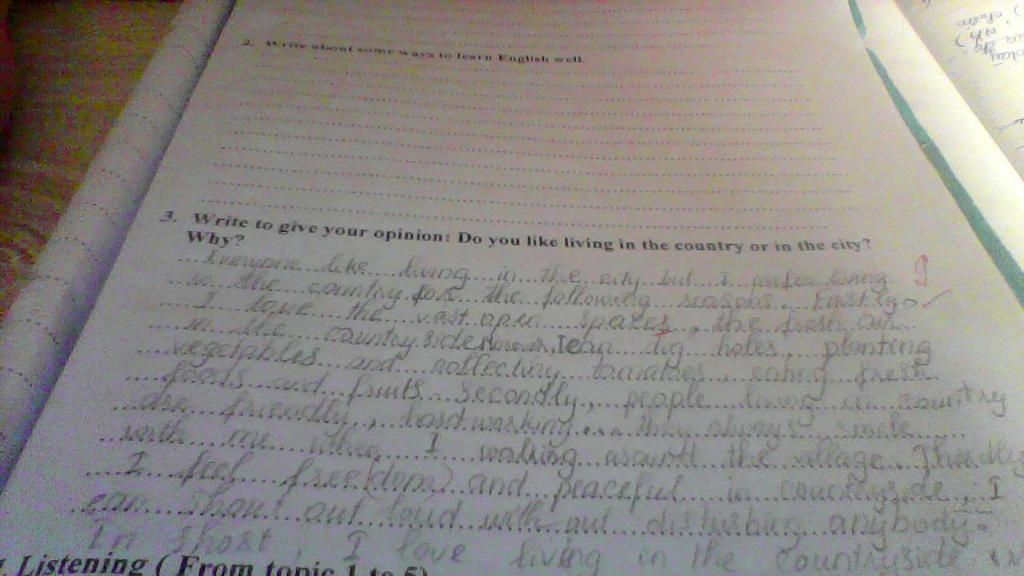 2. Write about some ways to learn English well.
3. Write to give your opinion: Do you like living in the country or in the city?
Why?
Everyone like living in the city but I prefer living
in the country for the following reasons. Firstly,
I love the vast open spaces, the fresh air
in the country side. Moreover, I can dig holes, planting
vegetables and collecting tomatoes, eating fresh
foods and fruits. Secondly, people living in country
are friendly, hard working... they always smile
with me when I walking around the village. Thirdly
I feel free(dom) and peaceful in countryside, I
can shout out loud with out disturbing anybody.
In short, I love living in the countryside
Listening (From topic 1 to 5)